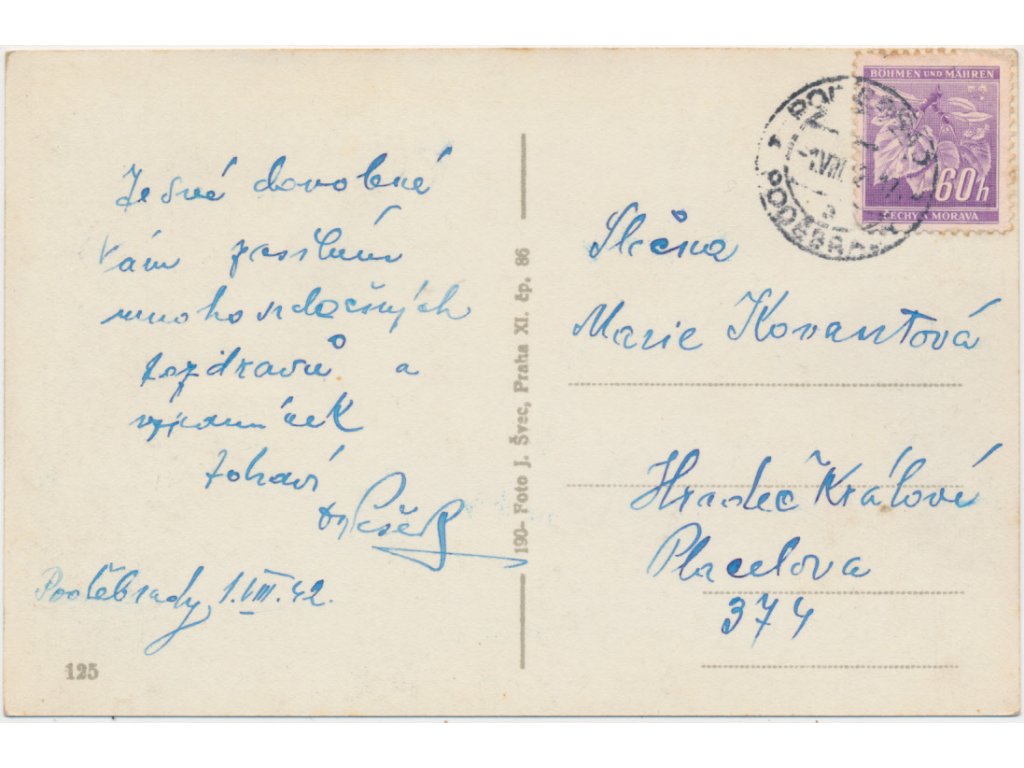 Ze své dovolené
Vám posílám
mnoho srdečných
pozdravů a
vzpomínek
Zdraví
Poděbrady, 1.VIII.42.
125
190- Foto J. Švec, Praha XI. čp. 86
BÖHMEN UND MÄHREN
60h
ČECHY A MORAVA
PODĚBRADY
Slečna
Marie Kovantová
Hradec Králové
Placelova
374